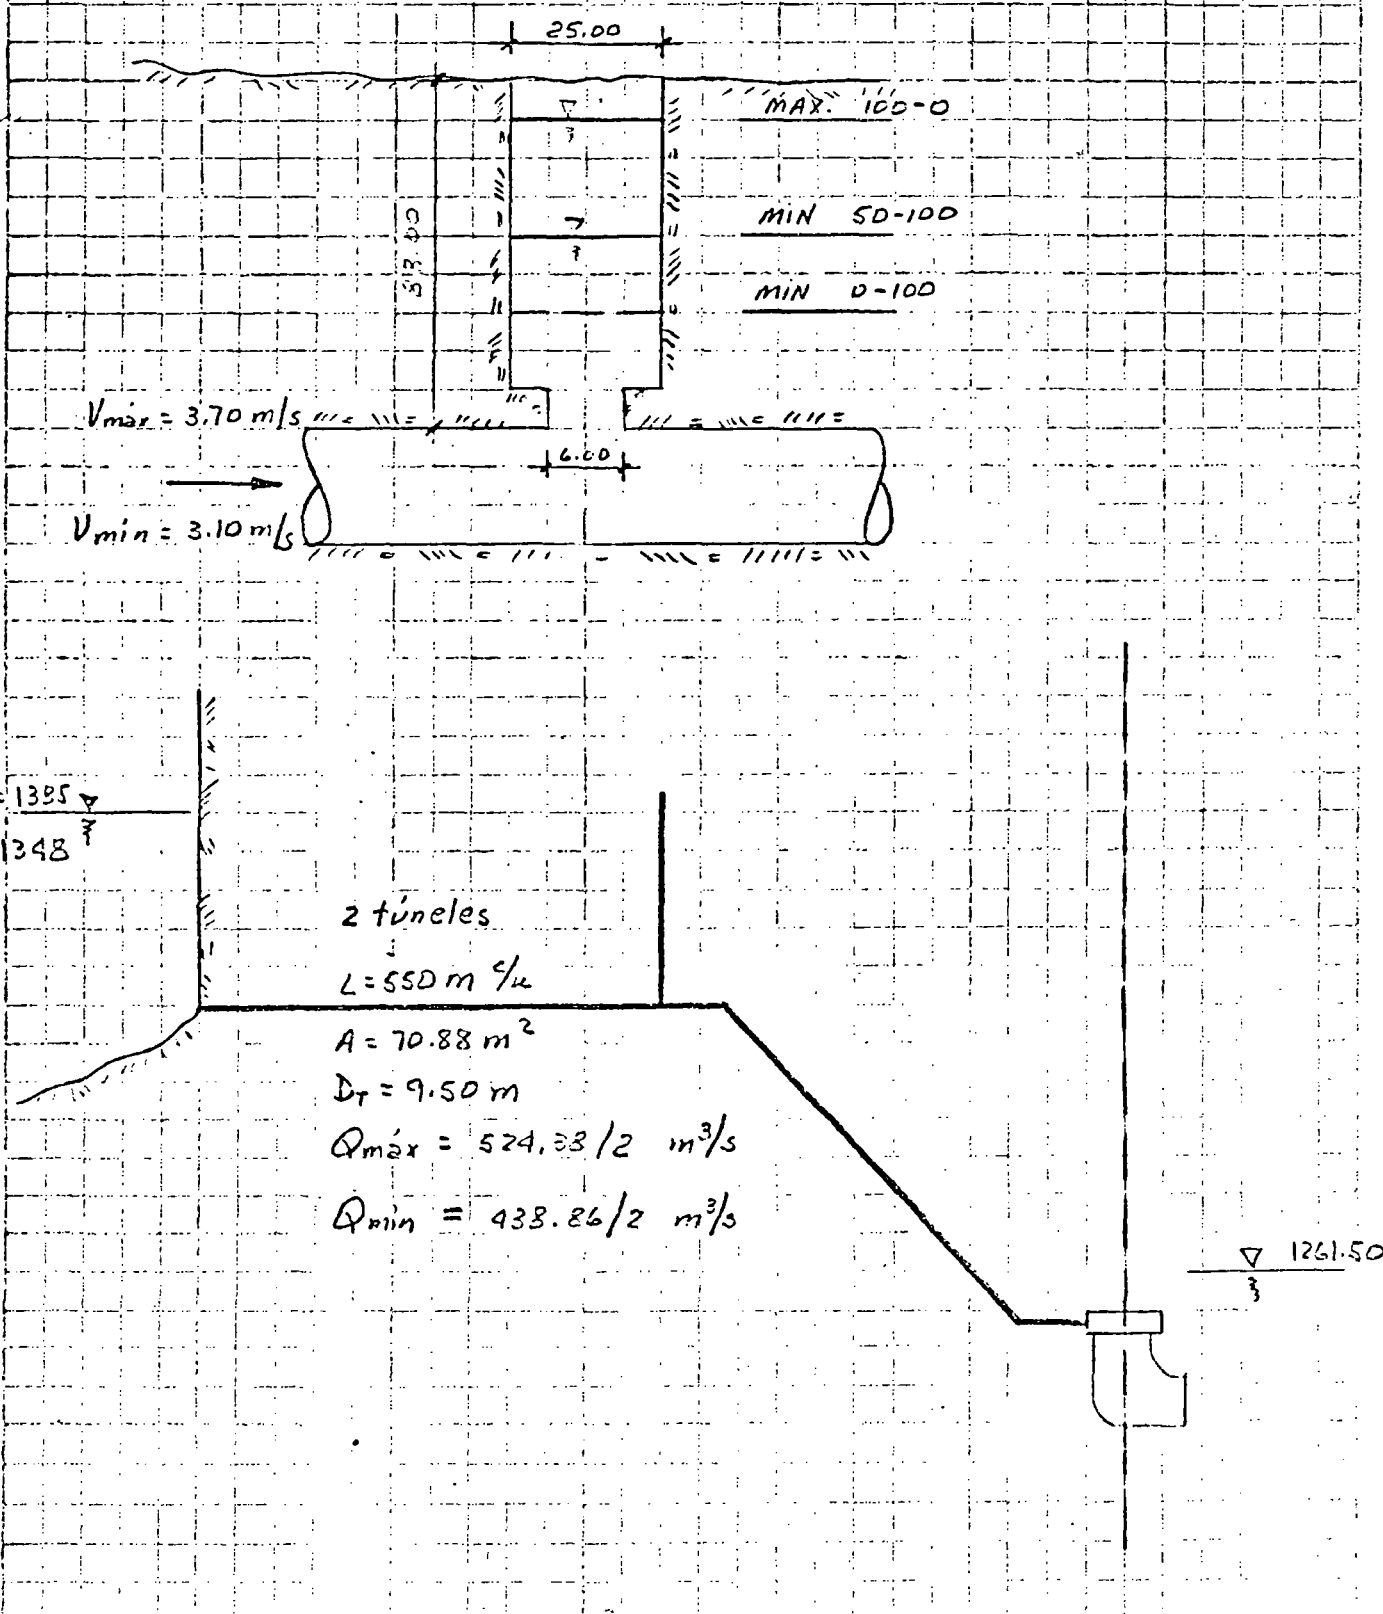 25.00
MAX. 100-0
MIN 50-100
MIN 0-100
Vmáx = 3.70 m/s
6.00
Vmín = 3.10 m/s
1395
1348
2 túneles
L = 550 m c/u
A = 70.88 m²
D_T = 9.50 m
Qmáx = 524.38/2 m³/s
Qmín = 438.86/2 m³/s
1261.50